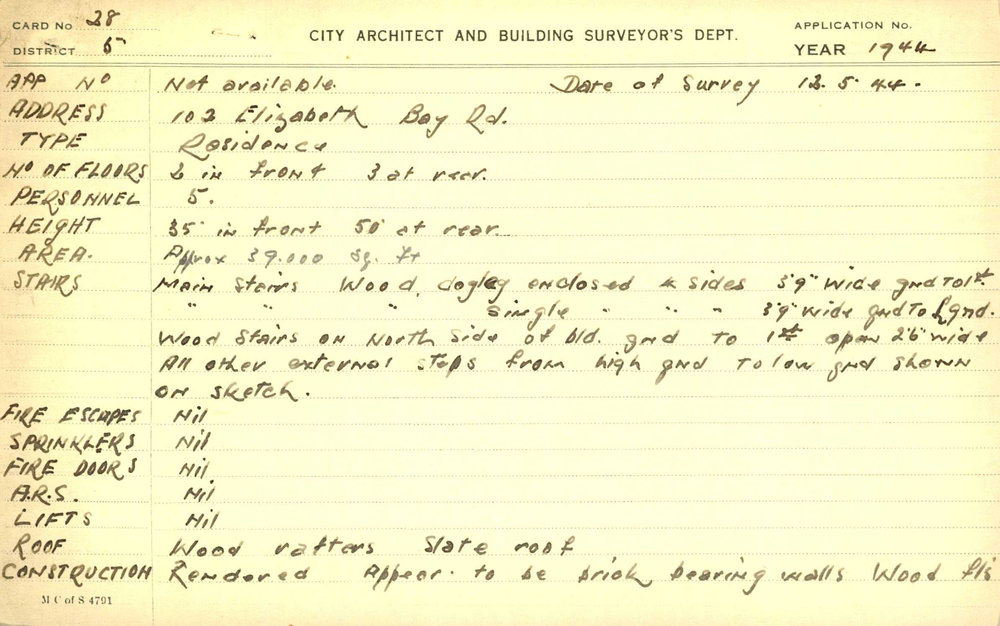 CARD No 28
DISTRICT 5
CITY ARCHITECT AND BUILDING SURVEYOR'S DEPT.
APPLICATION No.
YEAR 1944
APP No Not available. Date of Survey 12.5.44.
ADDRESS 102 Elizabeth Bay Rd.
TYPE Residence
No OF FLOORS 2 in front 3 at rear.
PERSONNEL 5.
HEIGHT 35' in front 50' at rear.
AREA. Approx 39.000 sq. ft
STAIRS Main Stairs Wood, dogleg enclosed 4 sides 3'9" wide gnd to 1st.
" " " Single " " " 3'9" wide gnd to L gnd.
Wood Stairs on North side of bld. gnd to 1st open 2'6" wide
All other external steps from high gnd to low gnd shown
on sketch.
FIRE ESCAPES Nil
SPRINKLERS Nil
FIRE DOORS Nil.
A.R.S. Nil
LIFTS Nil
ROOF Wood rafters Slate roof
CONSTRUCTION Rendered Appear. to be brick bearing walls Wood fls
M C of S 4791